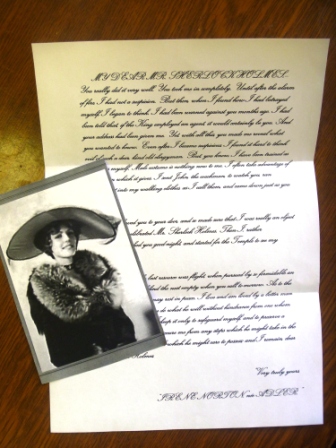 MY DEAR MR. SHERLOCK HOLMES,
You really did it very well. You took me in completely. Until after the alarm
of fire, I had not a suspicion. But then, when I found how I had betrayed
myself, I began to think. I had been warned against you months ago. I had
been told that if the King employed an agent it would certainly be you. And
your address had been given me. Yet, with all this, you made me reveal what
you wanted to know. Even after I became suspicious, I found it hard to think
a dear, kind old clergyman. But, you know, I have been trained as
myself. Male costume is nothing new to me. I often take advantage of
which it gives. I sent John, the coachman, to watch you, ran
into my walking clothes, as I call them, and came down just as you
you to your door, and so made sure that I was really an object
celebrated Mr. Sherlock Holmes. Then I, rather
wished you good night, and started for the Temple to see my
best resource was flight, when pursued by so formidable an
find the nest empty when you call to-morrow. As to the
may rest in peace. I love and am loved by a better man
do what he will without hindrance from one whom
keep it only to safeguard myself, and to preserve a
secure me from any steps which he might take in the
which he might care to possess; and I remain, dear
Holmes,
Very truly yours,
IRENE NORTON, née ADLER